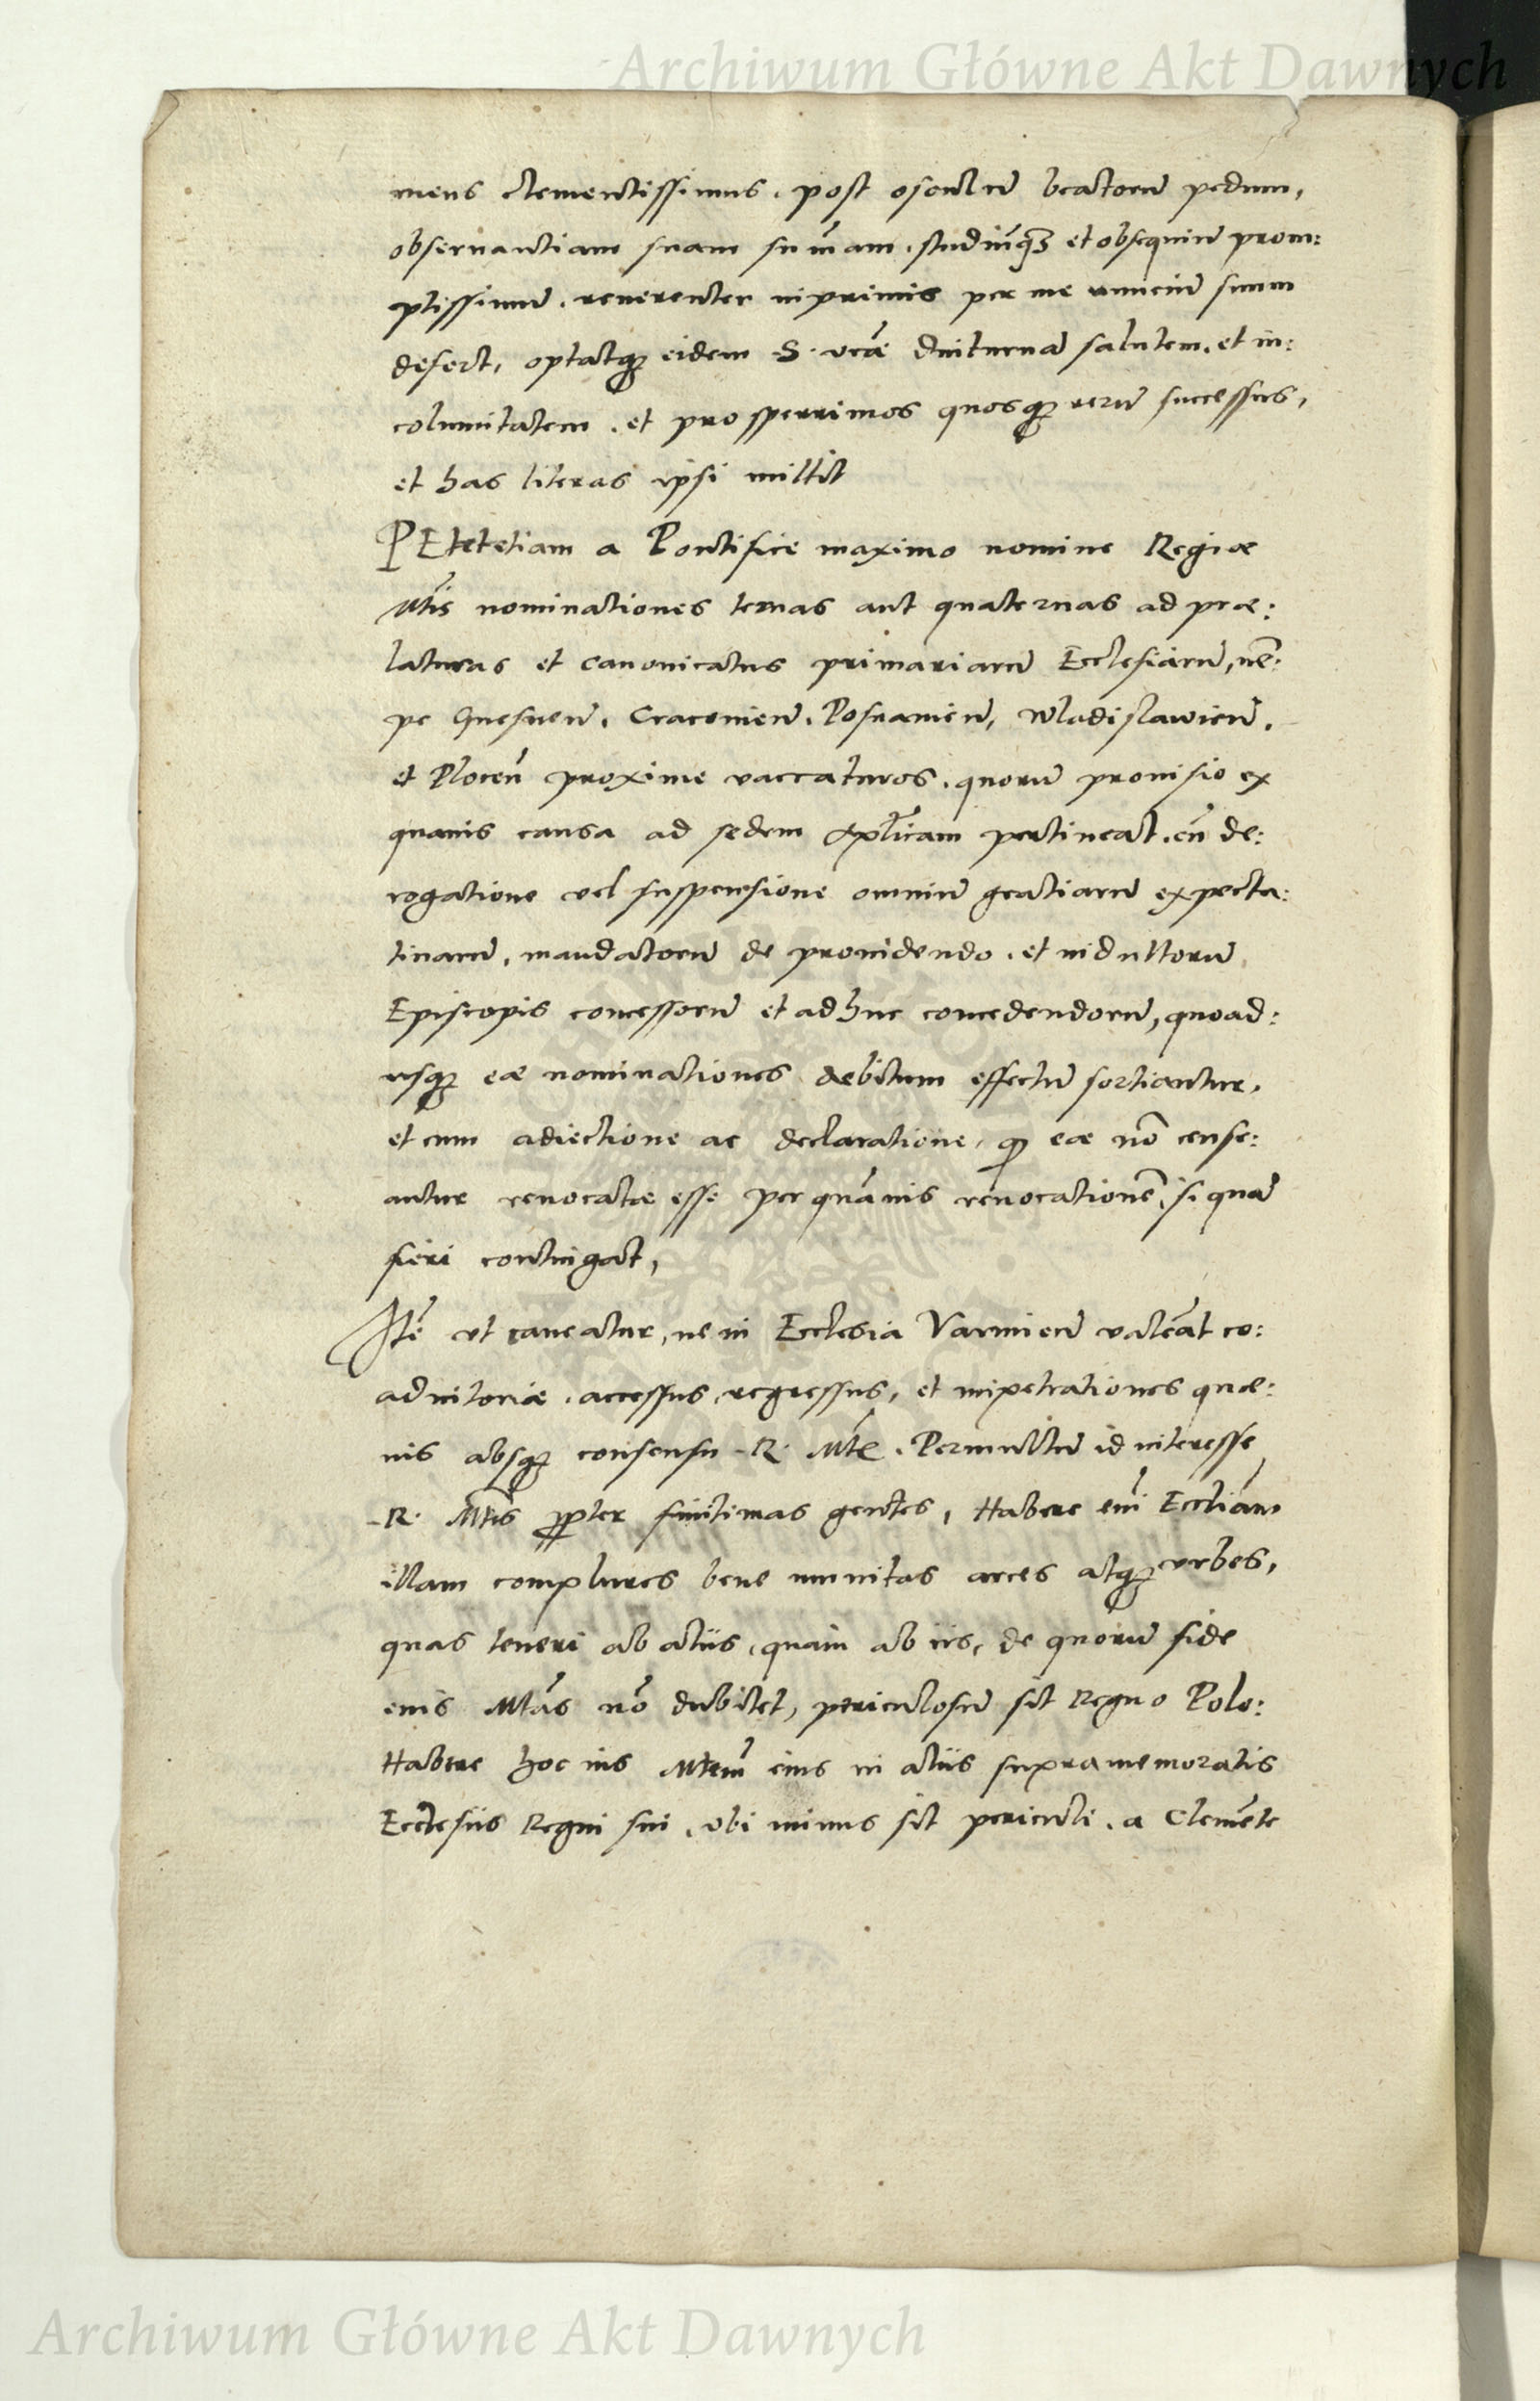 Archiwum Główne Akt Dawnych
meus clementissimus, post osculũ beatorũ pedum,
obseruantiam suam sum̃am, studiũq3 et obsequiũ prom:
ptissimũ, reuerenter inprimis per me nunciũ suum
defert, optatq3 eidem S. vrã̃e diuturnã salutem, et in:
columitatem, et prosperrimos quosq3 rerũ successus,
et has literas ipsi mittit
PEtet etiam a Pontifice maximo nomine Regiæ
Mtĩs nominationes ternas aut quaternas ad præ:
laturas et canonicatus primariarũ Ecclesiarũ, nẽ:
pe Gnesneñ, Cracouieñ, Posnanieñ, Wladislawieñ,
et Ploceñ proxime vaccaturos, quorũ prouisio ex
quauis causa ad sedem Apl̃icam pertineat, cũ de:
rogatione vel suspensione omniũ gratiarũ expecta:
tiuarũ, mandatorũ de prouidendo, et indultorũ
Episcopis concessorũ et adhuc concedendorũ, quoad:
usq3 eæ nominationes debitum effectũ sortiantur,
et cum adiectione ac declaratione, q eæ nõ cense:
antur reuocatæ esse per quãuis reuocationẽ, si quã
fieri contingat,
Itẽ vt caueatur, ne in Ecclesia Varmieñ valeãt co:
adiutoriæ, accessus, regressus, et impetrationes quæ:
uis absq3 consensu R. Mt̃e. Permultũ id interesse
R. Mtĩs ppter finitimas gentes, Habere em̃ Eccliãm
illam complures bene munitas arces atq3 vrbes,
quas teneri ab aliis, quam ab iis, de quorũ fide
eius Mtãs nõ dubitet, periculosũ sit Regno Polo:
Habere hoc ius Mtem̃ eius in aliis supramemoratis
Ecclesiis Regni sui, vbi minus sit periculi, a Clemẽte
Archiwum Główne Akt Dawnych